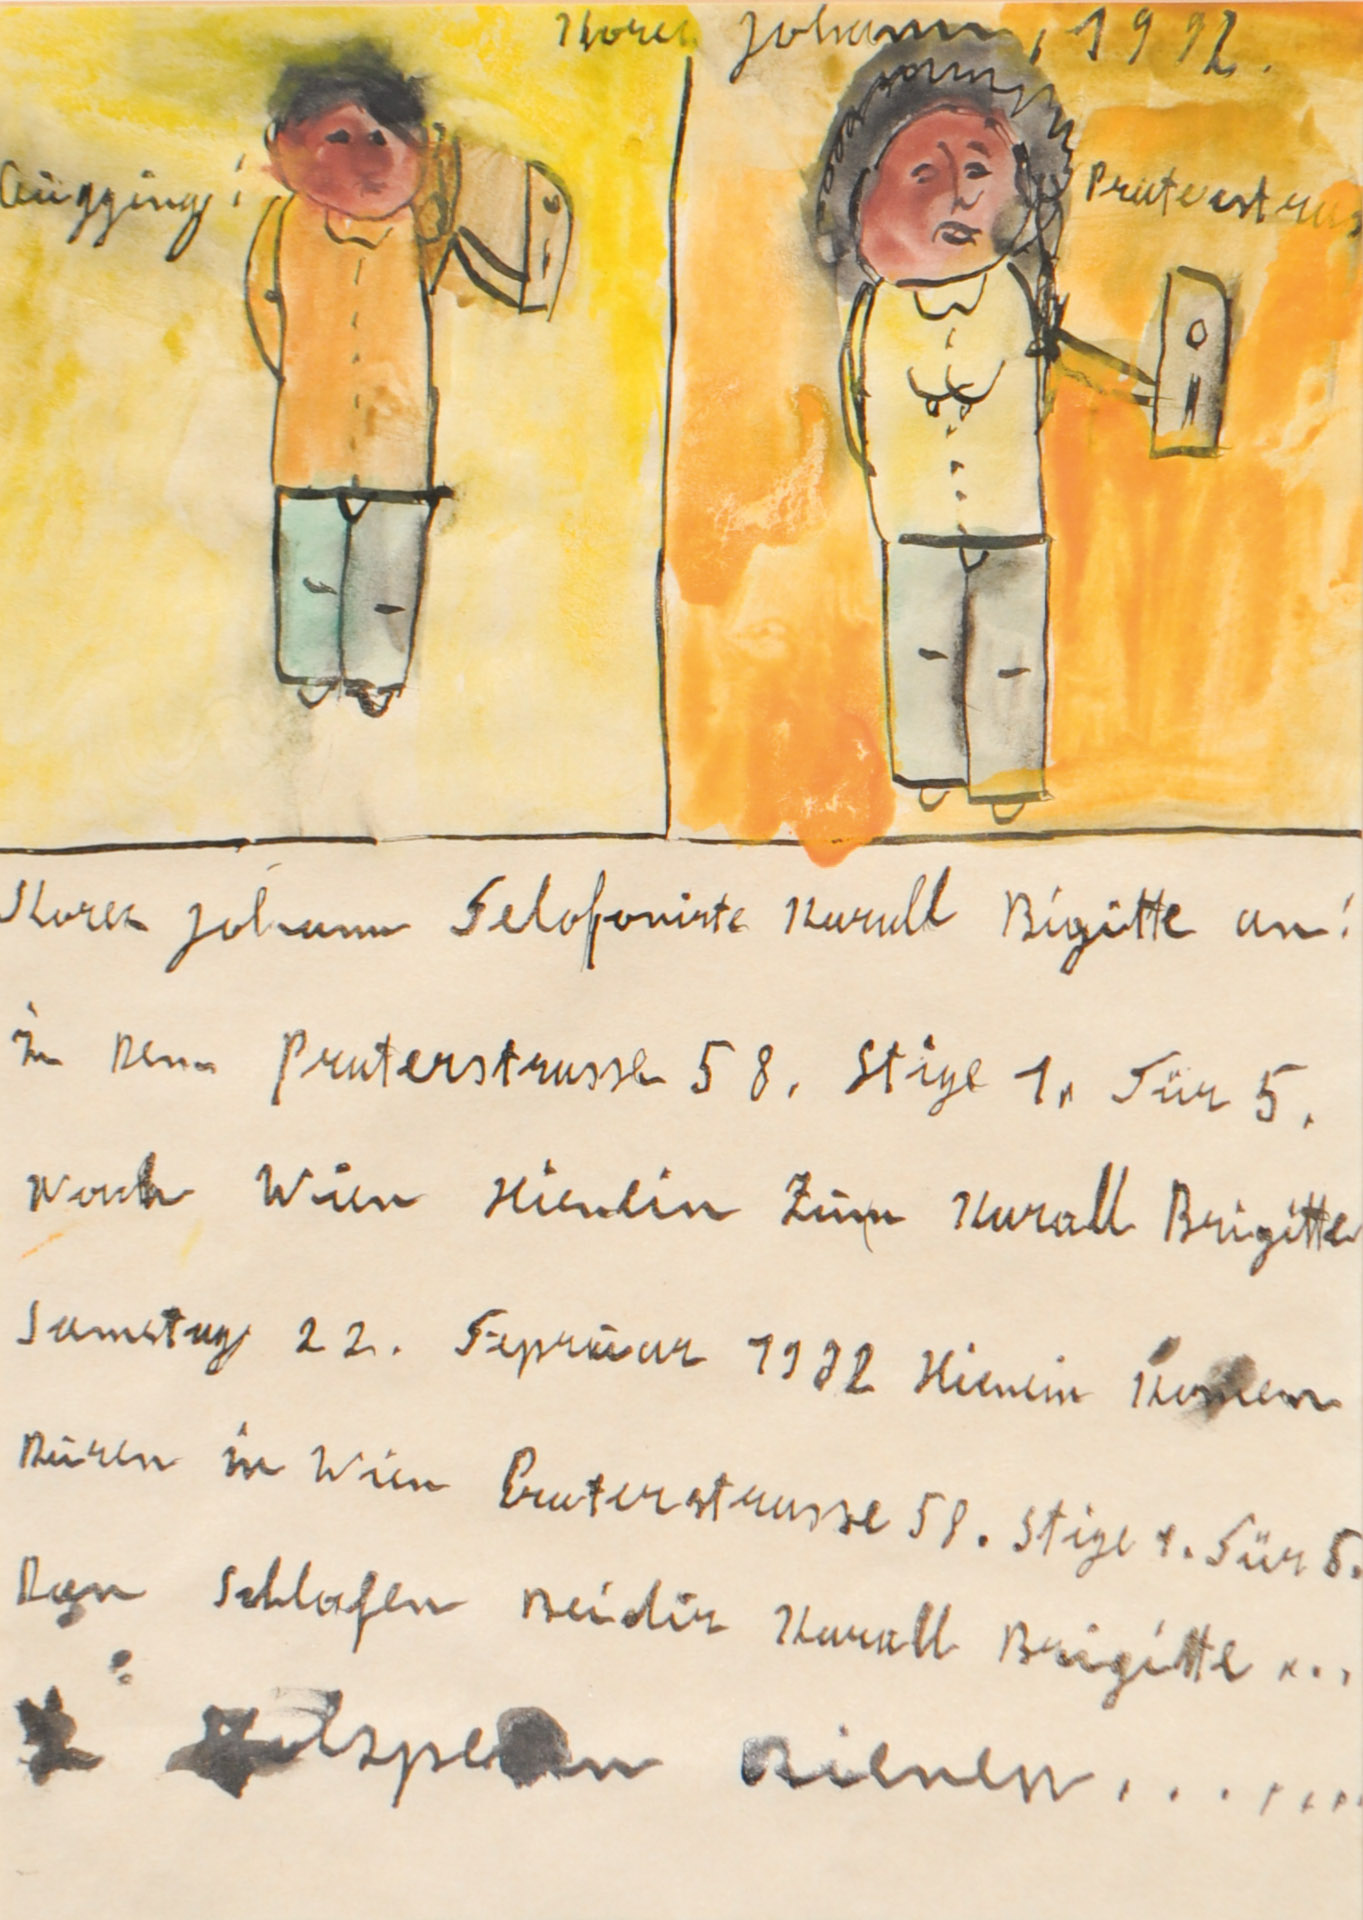 Korec Johann, 1992.
Gugging!
Praterstras
Korec Johann Telofonirte Kurall Bigitte an!
in Praterstrasse 58. Stige 1. Tür 5.
Nach Wien Hienein Zum Kurall Brigitte
Samstag 22. Fepruar 1992 Hienein Komen
in Wien Praterstrasse 58. Stige 1. Tür 5.
Dan Schlafen Beidir Kurall Brigitte ...